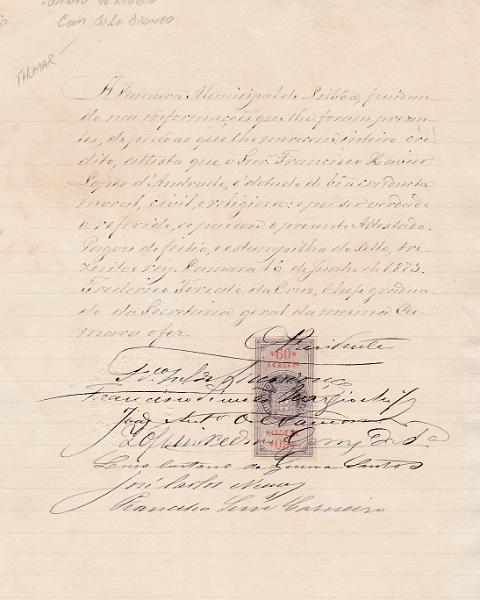 Com Selo Branco
THOMAR
A Camara Municipal de Lisbôa, fundan-
do nas informações que lhe foram presen-
tes, de pessoas que lhe merecem inteiro cre-
dito, attesta que o Snr. Francisco Xavier
Lopes d'Andrade, é dotado de bôa conducta
moral, civil, e religiosa: e por ser verdade
o referido, se passou o presente Attestado.
Pagou de feitio, e estampilha do Sello, tre-
zentos reis. Camara 16 de Junho de 1873.
Frederico Torcato da Cruz, Chefe gradua-
do da Secretaria geral da mesma Ca-
mara o fez.
O Presidente
60
REIS
Francisco
Luis Caetano da Guerra Santos
José Carlos Nunes
Francisco
REIS
60